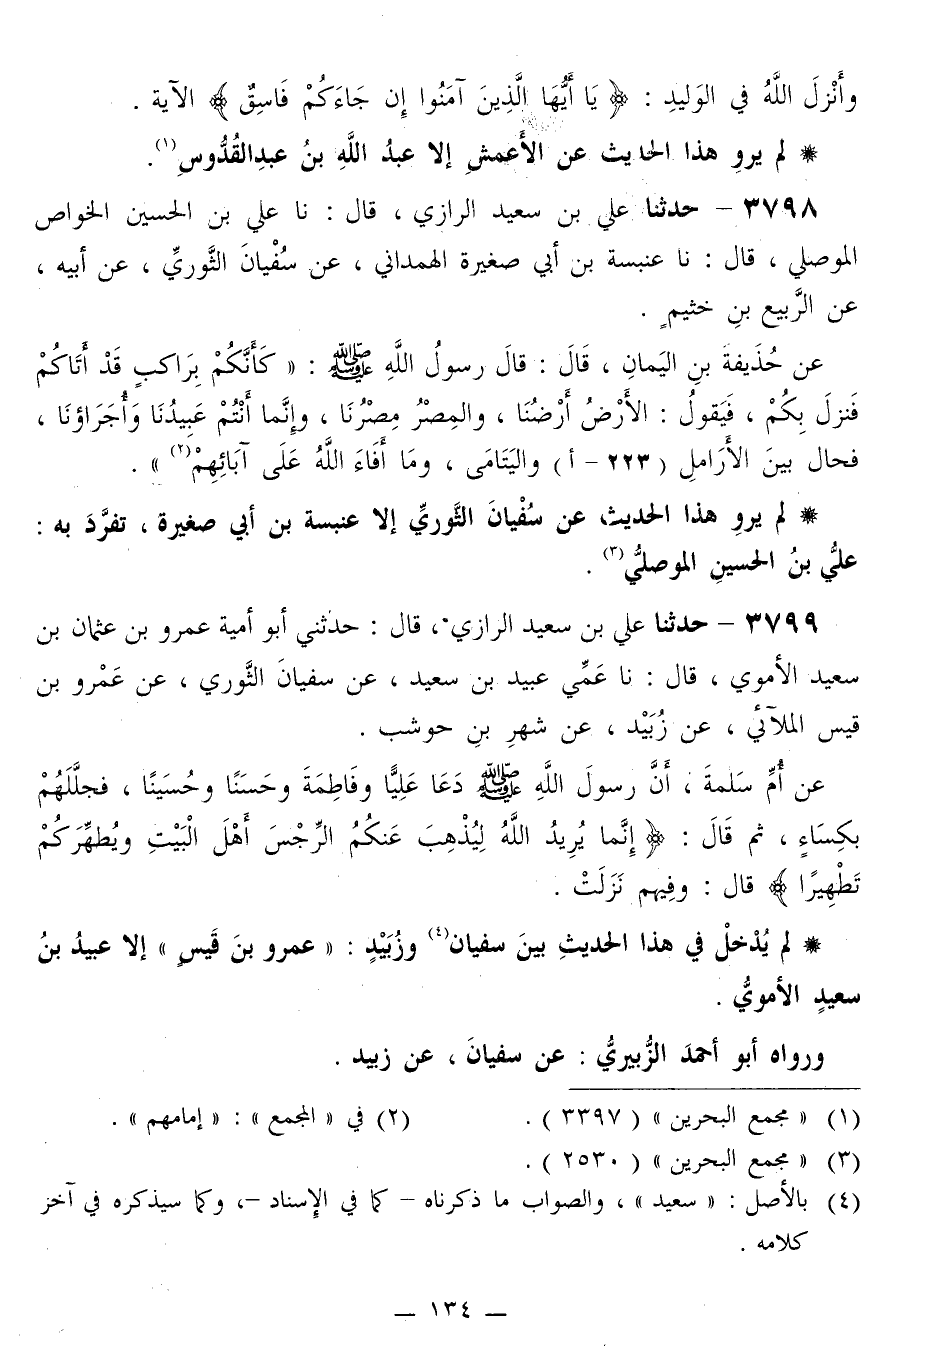 وأَنْزلَ اللَّهُ في الوَليدِ : ﴿ يَا أَيُّهَا الَّذِينَ آمَنُوا إِن جَاءَكُمْ فَاسِقٌ ﴾ الآية .
* لم يروِ هذا الحديث عن الأَعمشِ إلا عبدُ اللَّهِ بنُ عبدِالقُدُّوسِ(١).
٣٧٩٨ – حدثنا علي بن سعيد الرازي ، قال : نا علي بن الحسين الخواص
الموصلي ، قال : نا عنبسة بن أبي صغيرة الهمداني ، عن سُفْيانَ الثَّوريِّ ، عن أبيه ،
عن الرَّبيع بنِ خثيمٍ .
عن حُذَيفةَ بنِ اليَمانِ ، قَالَ : قالَ رسولُ اللَّهِ ﷺ : « كَأَنَّكُمْ بِرَاكبٍ قَدْ أَتَاكُمْ
فَنزلَ بِكُمْ ، فَيَقولُ : الأَرْضُ أَرْضُنَا ، والمِصْرُ مِصْرُنَا ، وإنَّما أَنْتُمْ عَبِيدُنَا وَأُجَرَاؤنَا ،
فحال بينَ الأَرَاملِ ( ٢٢٣ – أ ) واليَتَامَى ، ومَا أَفَاءَ اللَّهُ عَلَى آبَائِهِمْ(٢) » .
* لم يروِ هذا الحديث عن سُفْيانَ الثَّوريِّ إلا عنبسة بن أبي صغيرة ، تفرَّدَ به :
عليُّ بنُ الحسينِ الموصليُّ(٣) .
٣٧٩٩ – حدثنا علي بن سعيد الرازي ، قال : حدثني أبو أمية عمرو بن عثمان بن
سعيد الأموي ، قال : نا عَمِّي عبيد بن سعيد ، عن سفيانَ الثَّوري ، عن عَمْرو بن
قيس الملآئي ، عن زُبَيْد ، عن شهرِ بنِ حوشب .
عن أُمِّ سَلمةَ ، أَنَّ رسولَ اللَّهِ ﷺ دَعَا عَلِيًّا وفَاطِمَةَ وحَسَنًا وحُسَينًا ، فجلَّلَهُمْ
بكِسَاءٍ ، ثم قَالَ : ﴿ إِنَّما يُرِيدُ اللَّهُ لِيُذْهِبَ عَنكُمُ الرِّجْسَ أَهْلَ الْبَيْتِ ويُطهِّرَكُمْ
تَطْهِيرًا ﴾ قال : وفِيهم نَزَلَتْ .
* لم يُدْخلْ في هذا الحديثِ بينَ سفيان(٤) وزُبَيْدٍ : « عمرو بنَ قَيسٍ » إلا عبيدُ بنُ
سعيدٍ الأمويُّ .
ورواه أبو أحمدَ الزُّبيريُّ : عن سفيانَ ، عن زبيد .
(١) « مجمع البحرين » ( ٣٣٩٧ ) . (٢) في « المجمع » : « إمامهم » .
(٣) « مجمع البحرين » ( ٢٥٣٠ ) .
(٤) بالأصل : « سعيد » ، والصواب ما ذكرناه – كما في الإسناد –، وكما سيذكره في آخر
كلامه .
— ١٣٤ —